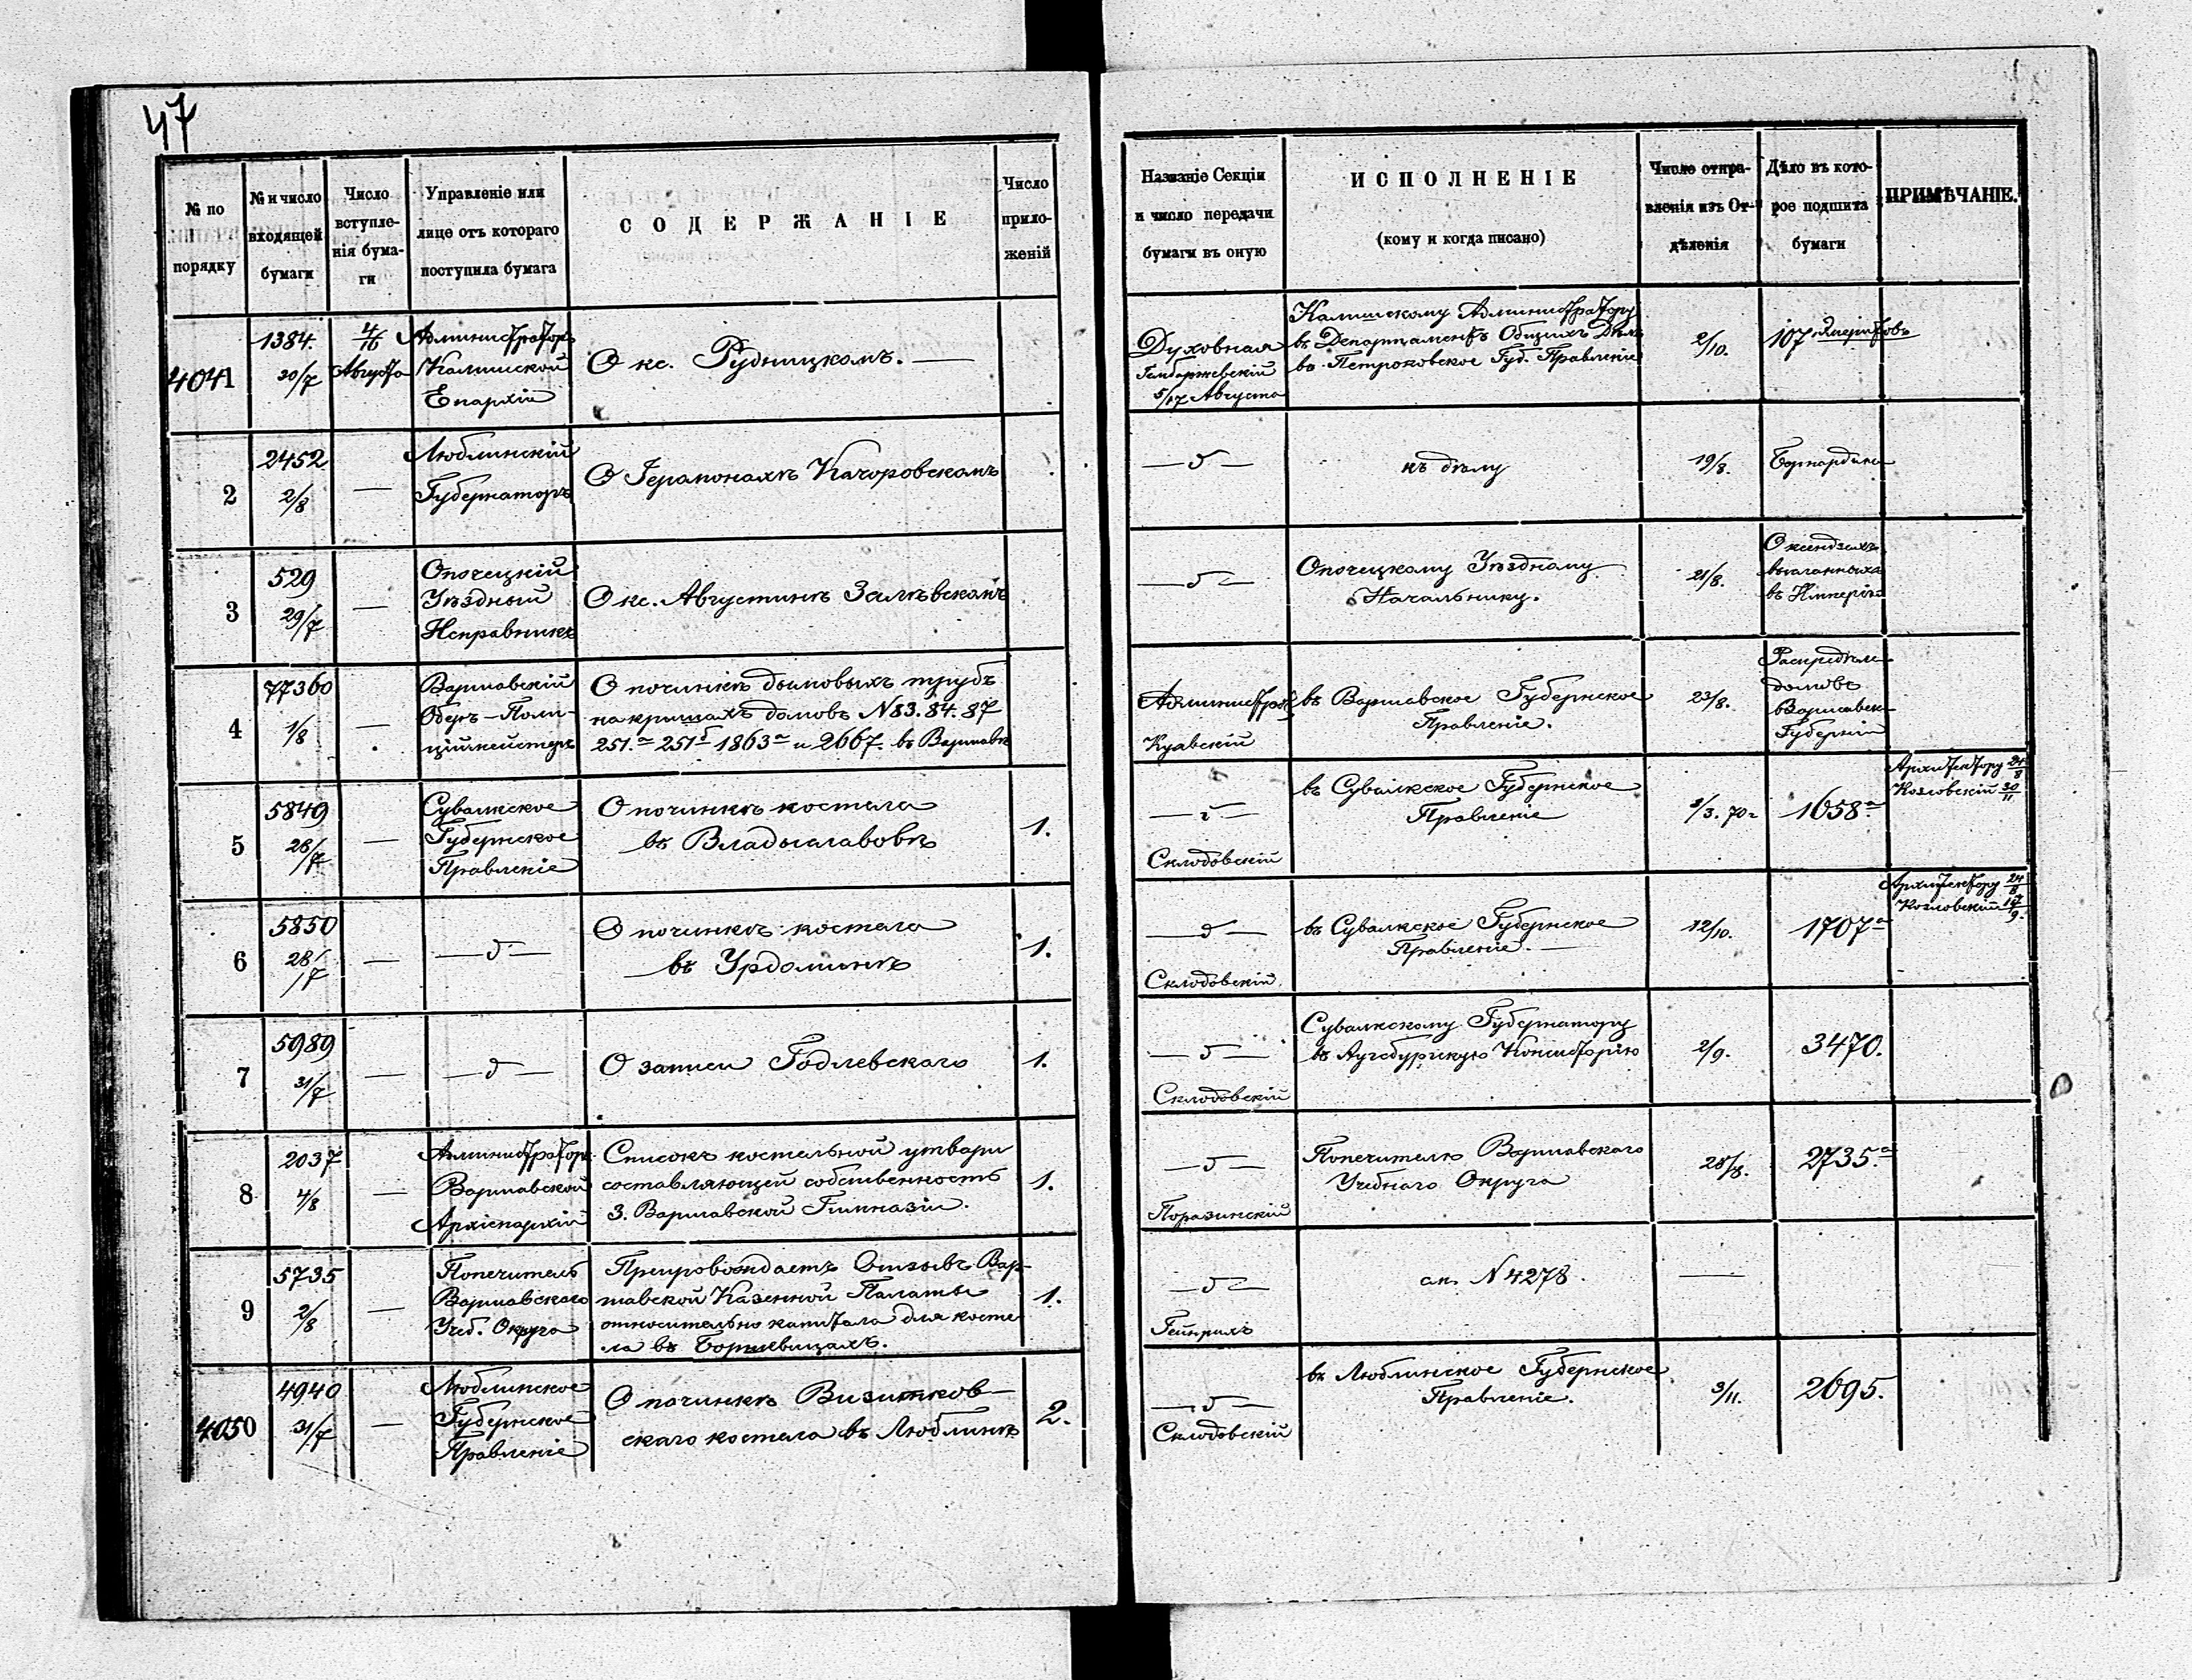 47
№ по порядку
№ и число входящей бумаги
Число вступленія бумаги
Управленіе или лице отъ котораго поступила бумага
СОДЕРЖАНІЕ
Число приложеній
Названіе Секціи и число передачи бумаги въ оную
ИСПОЛНЕНІЕ
(кому и когда писано)
Число отправленія изъ Отдѣленія
Дѣло въ которое подшита бумаги
ПРИМѢЧАНІЕ.
4041
1384.
30/7
4/16
Августа
Администраторъ
Калишской
Епархіи
О кс. Рудницкомъ. —
Духовная
5/17 Августа
Калишскому Администратору
въ Департаментъ Общихъ Дѣлъ
въ Петроковское Губ. Правленіе
2/10.
107
2
2452
2/8
—
Люблинскій
Губернаторъ
О Іеромонахѣ Качоровскомъ
— д —
къ дѣлу
19/8.
3
529
29/7
—
Опочецкій
Уѣздный
Исправникъ
О кс. Августинѣ Залѣвскомъ
— д —
Опочецкому Уѣздному
Начальнику.
21/8.
О ксендзахъ
высланныхъ
въ Имперію
4
77360
1/8
—
Варшавскій
Оберъ-Поли-
ціймейстеръ
О починкѣ дымовыхъ трубъ
на крышахъ домовъ N 83. 84. 87
251.а 251б 1863а и 2667. въ Варшавѣ
Куявскій
въ Варшавское Губернское
Правленіе.
23/8.
домовъ
Губерніи
5
5849
28/7
—
Сувалкское
Губернское
Правленіе
О починкѣ костела
въ Владыславовѣ
1.
— д —
Склодовскій
въ Сувалкское Губернское
Правленіе
3/3. 70г
1658а
Архитектору 24/8
Козловскій 30/11
6
5850
28/7
—
— д —
О починкѣ костела
въ Урдоминѣ
1.
— д —
Склодовскій
въ Сувалкское Губернское
Правленіе. —
12/10.
1707а
Архитектору 24/8
Козловскій 19/9.
7
5989
31/7
—
— д —
О записи Годлевскаго
1.
— д —
Склодовскій
Сувалкскому Губернатору
въ Аугсбургскую Консисторію
2/9.
3470.
8
2037
4/8
—
Администраторъ
Варшавской
Архіепархіи
Списокъ костельной утвари
составляющей собственность
3. Варшавской Гимназіи.
1.
— д —
Поразинскій
Попечителю Варшавскаго
Учебнаго Округа
28/8.
2735.а
9
5735
2/8
—
Попечитель
Варшавскаго
Учеб. Округа
Препровождаетъ Отзывъ Вар-
шавской Казенной Палаты
относительно капитала для косте
ла въ Боржевицахъ.
1.
— д —
Гейнрихъ
N 4278.
—
4050
4940
31/7
—
Люблинское
Губернское
Правленіе
О починкѣ Визитков-
скаго костела въ Люблинѣ
2.
— д —
Склодовскій
въ Люблинское Губернское
Правленіе.
3/11.
2695.